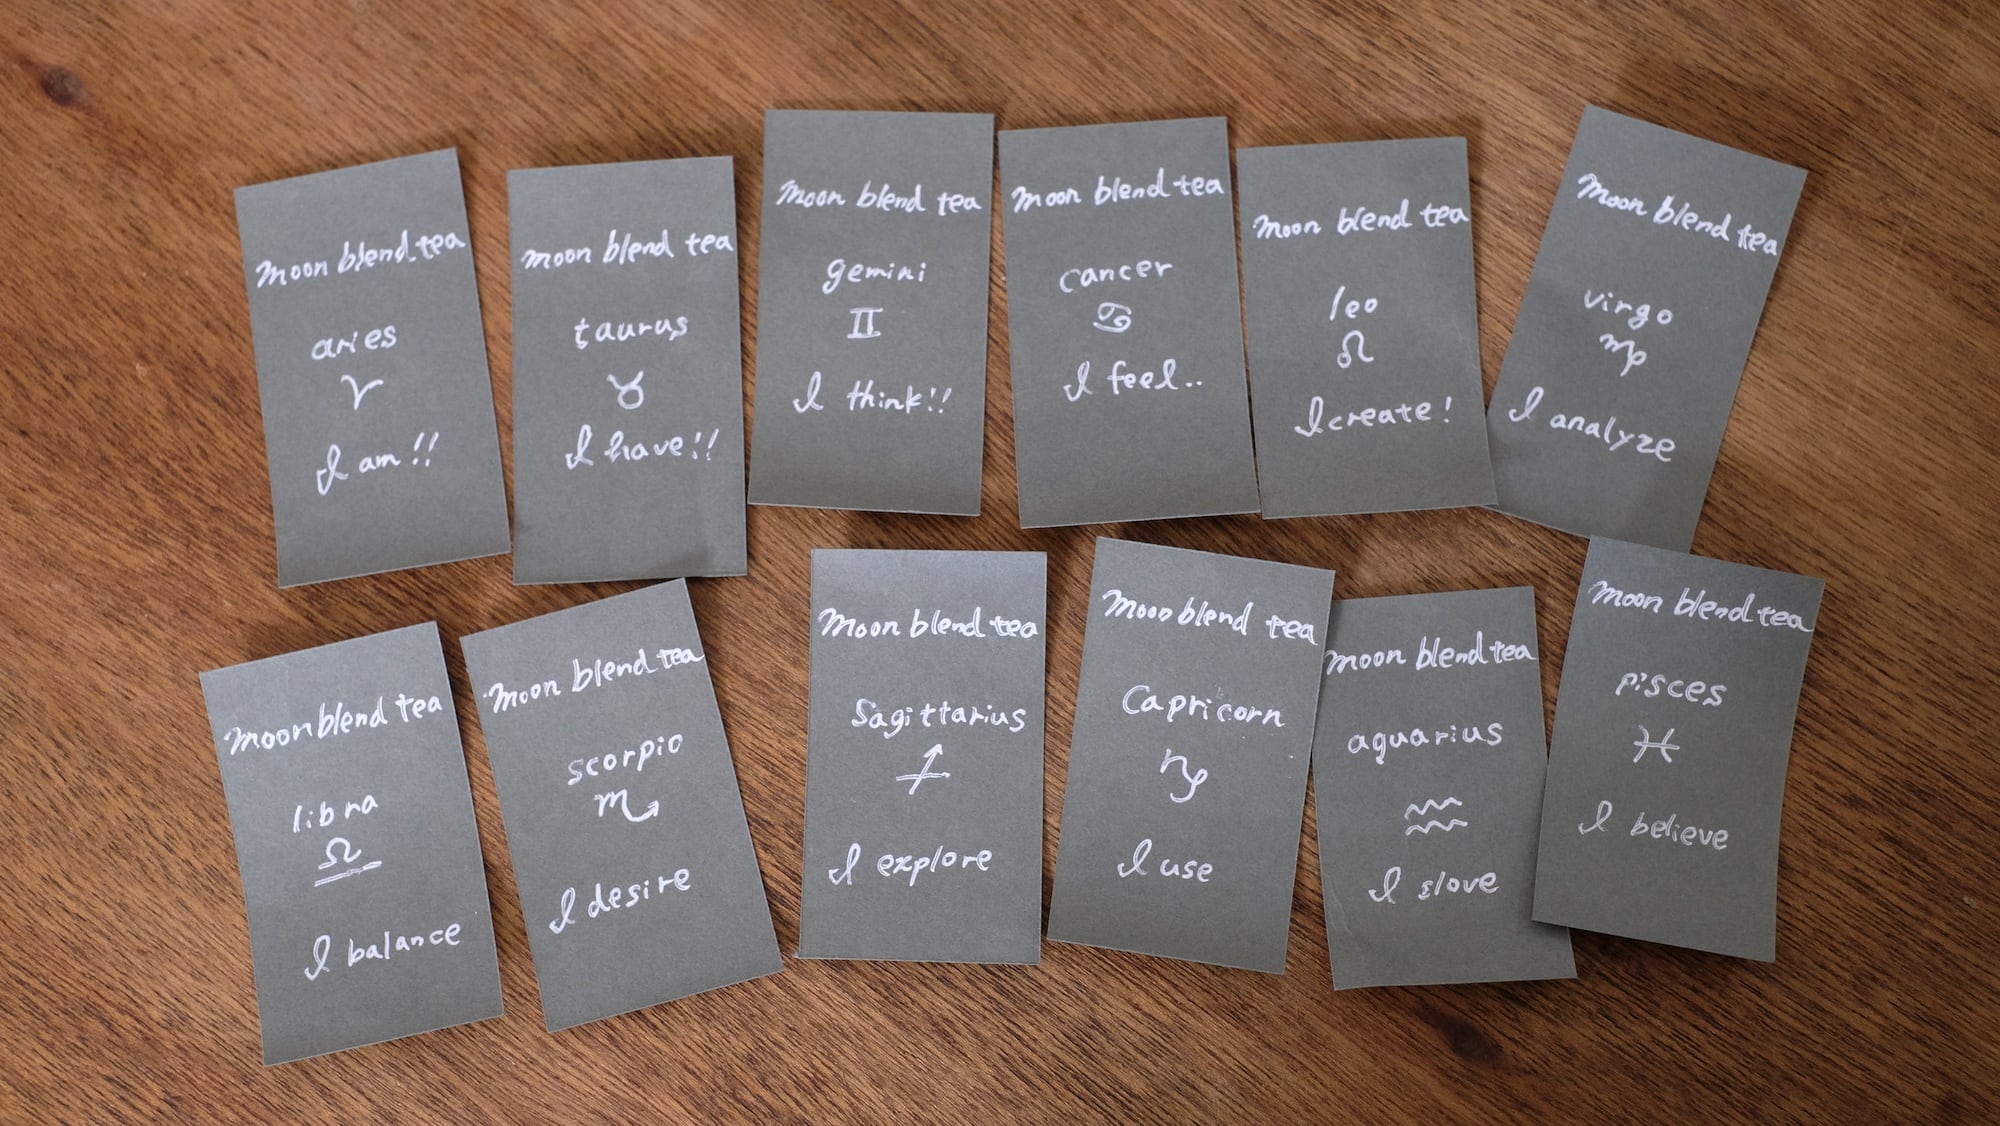 Moon blend tea
aries
♈
I am!!
Moon blend tea
taurus
♉
I have!!
Moon blend tea
gemini
♊
I think!!
Moon blend tea
cancer
♋
I feel..
Moon blend tea
leo
♌
I create!
Moon blend tea
virgo
♍
I analyze
Moon blend tea
libra
♎
I balance
Moon blend tea
scorpio
♏
I desire
Moon blend tea
Sagittarius
♐
I explore
Moon blend tea
Capricorn
♑
I use
Moon blend tea
aquarius
♒
I slove
Moon blend tea
pisces
♓
I believe